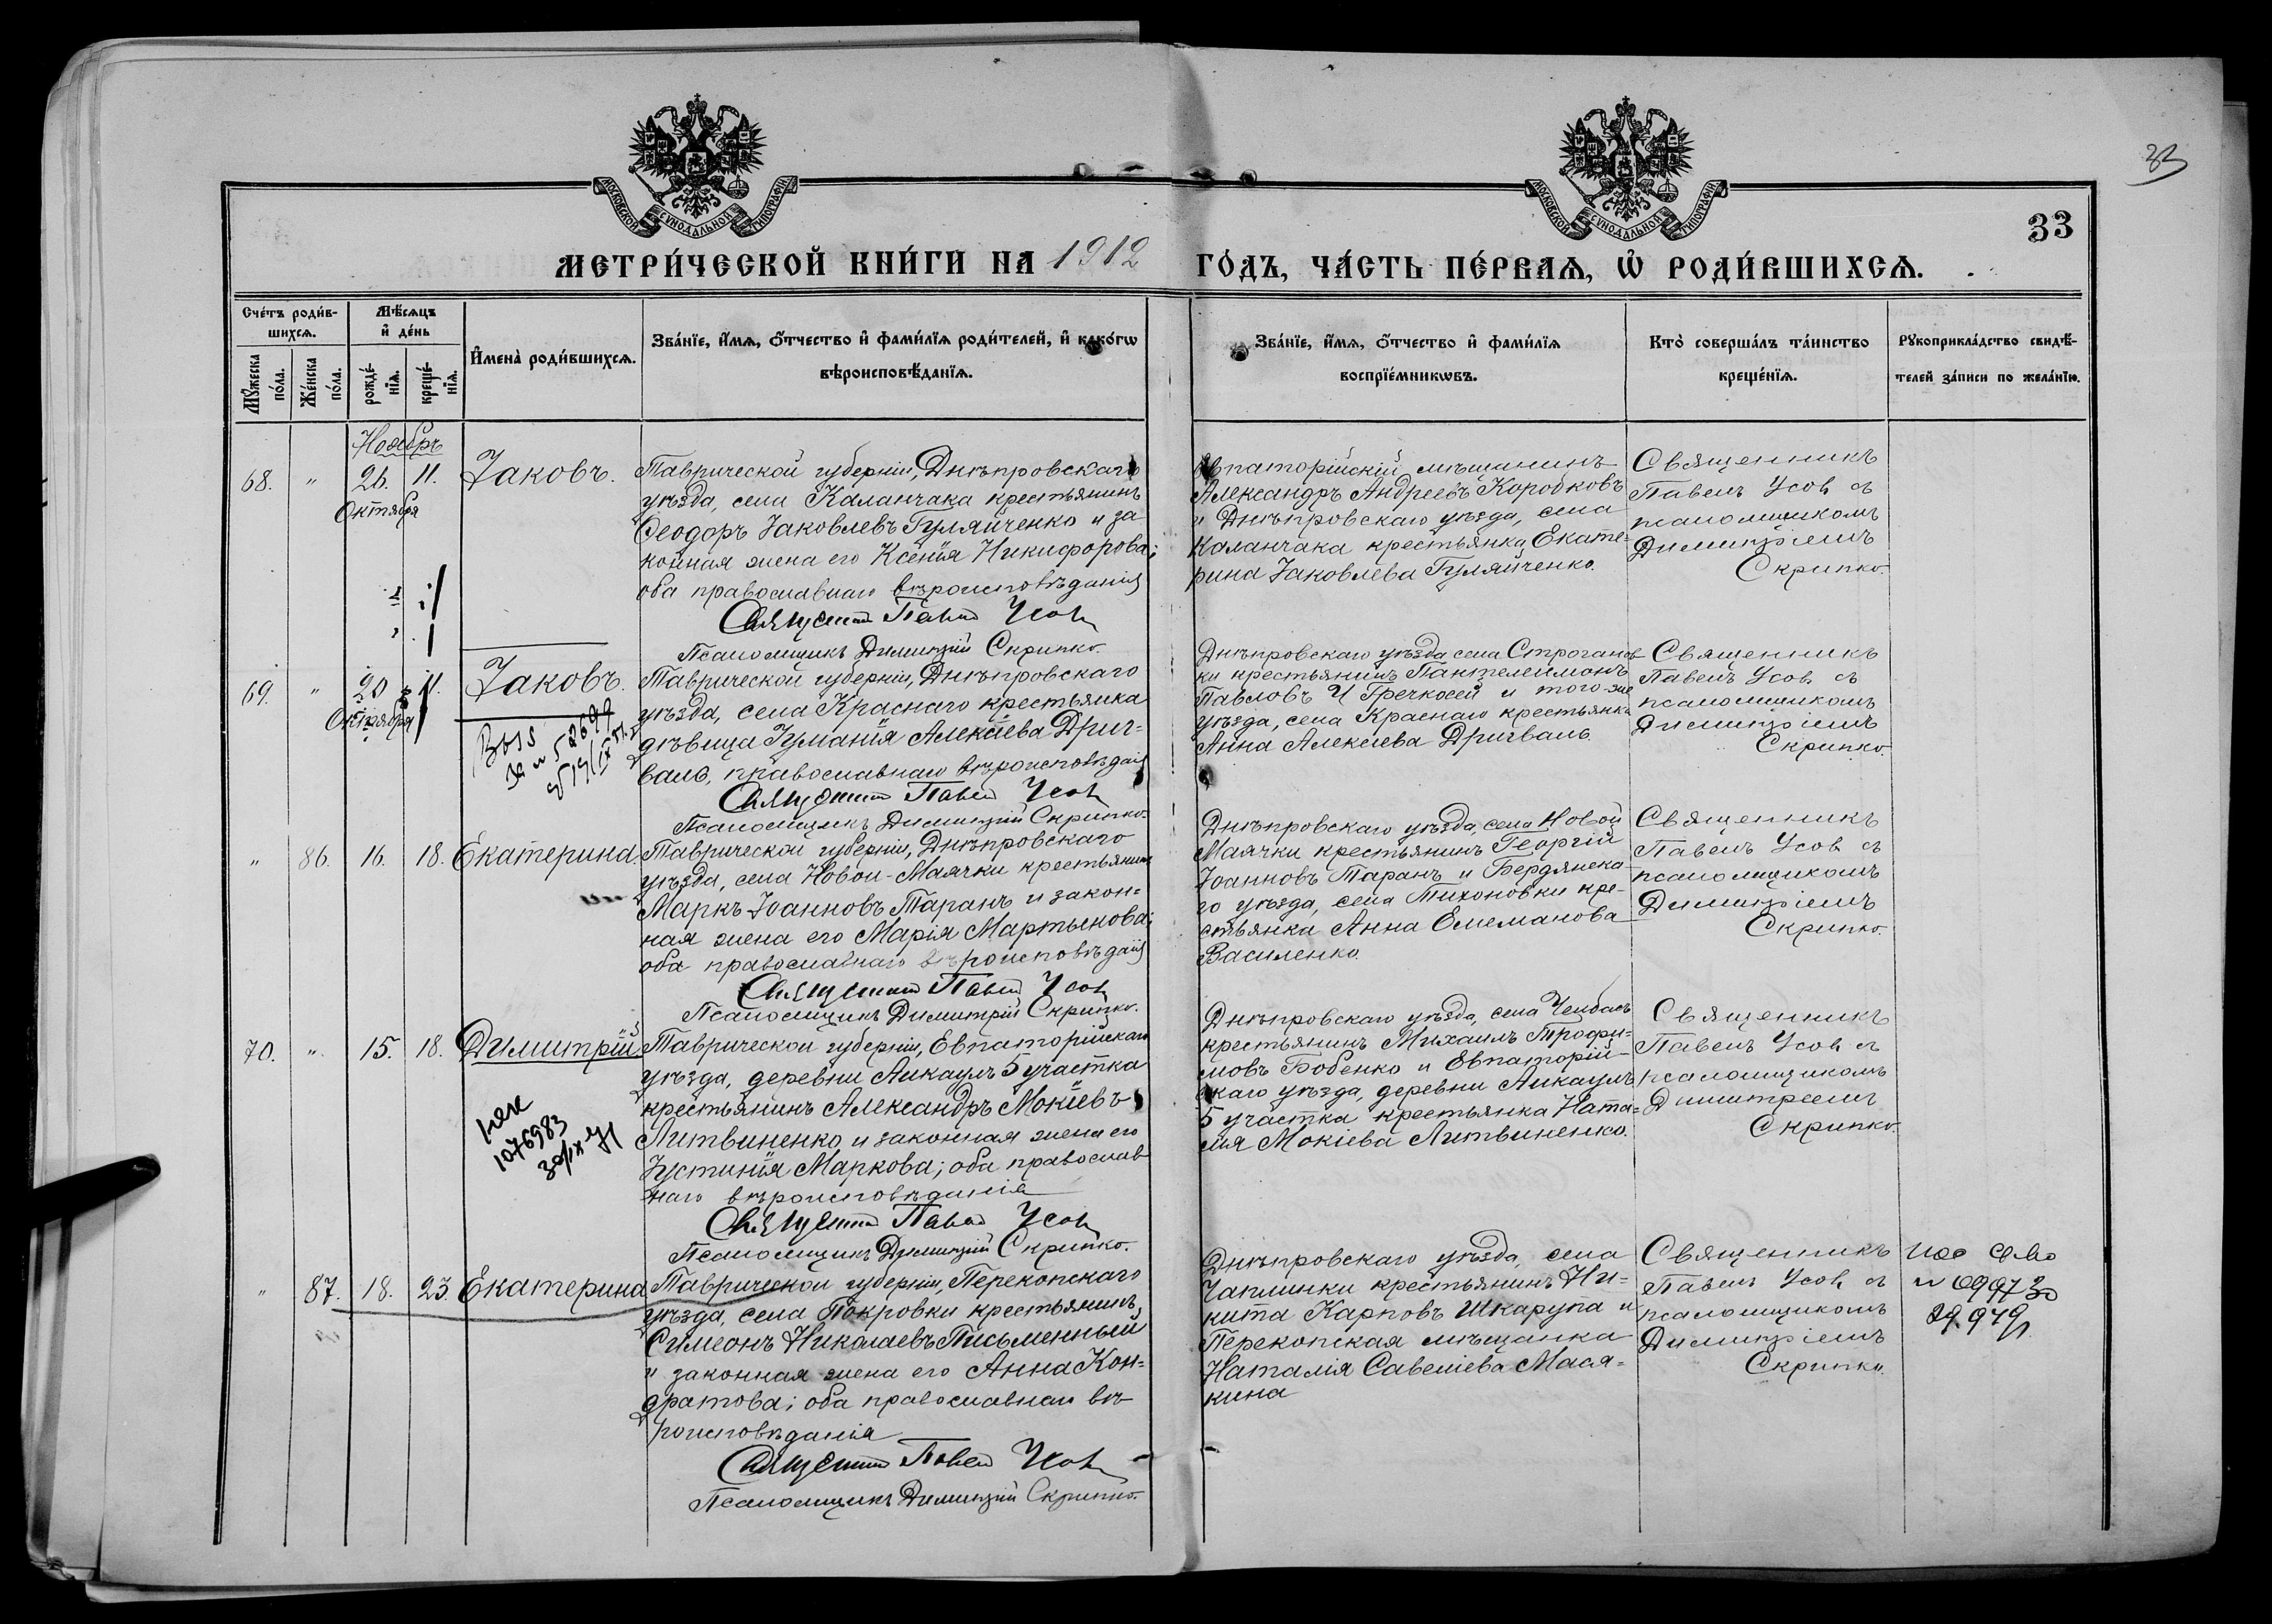 33
33
МОСКОВСКОЙ СУНОДАЛЬНОЙ ТИПОГРАФІИ
МОСКОВСКОЙ СУНОДАЛЬНОЙ ТИПОГРАФІИ
МЕТРИ́ЧЕСКОЙ КНИ́ГИ НА 1912 ГО́ДЪ, ЧА́СТЬ ПЕ́РВАѦ, Ѡ РОДИ́ВШИХСѦ.
Сче́тъ роди́в-
шихсѧ.
Мꙋ́жеска по́ла.
Же́нска по́ла.
Мѣ́сѧцъ
и де́нь
рожде́-
нїѧ.
креще́-
нїѧ.
Имена̀ роди́вшихсѧ.
Зва́нїе, и́мѧ, о́тчество и фами́лїѧ роди́телей, и како́гѡ
вѣроисповѣ́данїѧ.
Зва́нїе, и́мѧ, о́тчество и фами́лїѧ
воспрїе́мникѡвъ.
Кто̀ соверша́лъ та́инство
креще́нїѧ.
Рꙋкоприкла́дство свидѣ́-
телей за́писи по жела́нїю.
Ноябрь
68. " 26. 11. Іаковъ.
Октября
Таврической губерніи, Днѣпровскаго
уѣзда, села Каланчака крестьянинъ
Ѳеодоръ Іаковлевъ Гуляйченко и за
конная жена его Ксенія Никифорова;
оба православнаго вѣроисповѣданія
Священникъ Павелъ Усовъ
Псаломщикъ Димитрій Скрипко.
Евпаторійскій мѣщанинъ
Александръ Андреевъ Коробковъ
и Днѣпровскаго уѣзда, села
Каланчака крестьянка Екате-
рина Іаковлева Гуляйченко.
Священникъ
Павелъ Усовъ съ
псаломщикомъ
Димитріемъ
Скрипко.
69. " 20 11. Іаковъ.
Октября
Таврической губерніи, Днѣпровскаго
уѣзда, села Краснаго крестьянка
дѣвица Іуманія Алексіева Дриг-
валь, православнаго вѣроисповѣданія
Священникъ Павелъ Усовъ
Псаломщикъ Димитрій Скрипко.
Днѣпровскаго уѣзда села Строганов
ки крестьянинъ Пантелеимонъ
Павловъ Гречкосей и того-же
уѣзда, села Краснаго крестьянка
Анна Алексіева Дригваль.
Священникъ
Павелъ Усовъ съ
псаломщикомъ
Димитріемъ
Скрипко.
" 86. 16. 18. Екатерина
Таврической губерніи, Днѣпровскаго
уѣзда, села Новой-Маячки крестьянинъ
Маркъ Іоанновъ Таранъ и закон=
ная жена его Марія Мартынова;
оба православнаго вѣроисповѣданія
Священникъ Павелъ Усовъ
Псаломщикъ Димитрій Скрипко.
Днѣпровскаго уѣзда, села Новой
Маячки крестьянинъ Георгій
Іоанновъ Таранъ и Бердянска-
го уѣзда, села Тихоновки кре-
стьянка Анна
Василенко.
Священникъ
Павелъ Усовъ съ
псаломщикомъ
Димитріемъ
Скрипко.
70. " 15. 18. Димитрій
1076983
Таврической губерніи, Евпаторійскаго
уѣзда, деревни Аикаулъ 5 участка
крестьянинъ Александръ Мокіевъ
Литвиненко и законная жена его
Іустинія Маркова; оба православ
наго вѣроисповѣданія
Священникъ Павелъ Усовъ
Псаломщикъ Димитрій Скрипко.
Днѣпровскаго уѣзда, села Чембасъ
крестьянинъ Михаилъ Трофи=
мовъ Бобенко и Евпаторій-
скаго уѣзда, деревни Аикаулъ
5 участка крестьянка Ната=
лія Мокіева Литвиненко.
Священникъ
Павелъ Усовъ съ
псаломщикомъ
Димитріемъ
Скрипко.
" 87. 18. 23. Екатерина
Таврической губерніи, Перекопскаго
уѣзда, села Покровки крестьянинъ
Симеонъ Николаевъ Письменный
и законная жена его Анна Кон=
дратова; оба православнаго вѣ
роисповѣданія
Священникъ Павелъ Усовъ
Псаломщикъ Димитрій Скрипко.
Днѣпровскаго уѣзда, села
Чаплинки крестьянинъ Ни=
кита Карповъ Шкарупа и
Перекопская мѣщанка
Наталія Савеліева Мася=
кина
Священникъ
Павелъ Усовъ съ
псаломщикомъ
Димитріемъ
Скрипко.